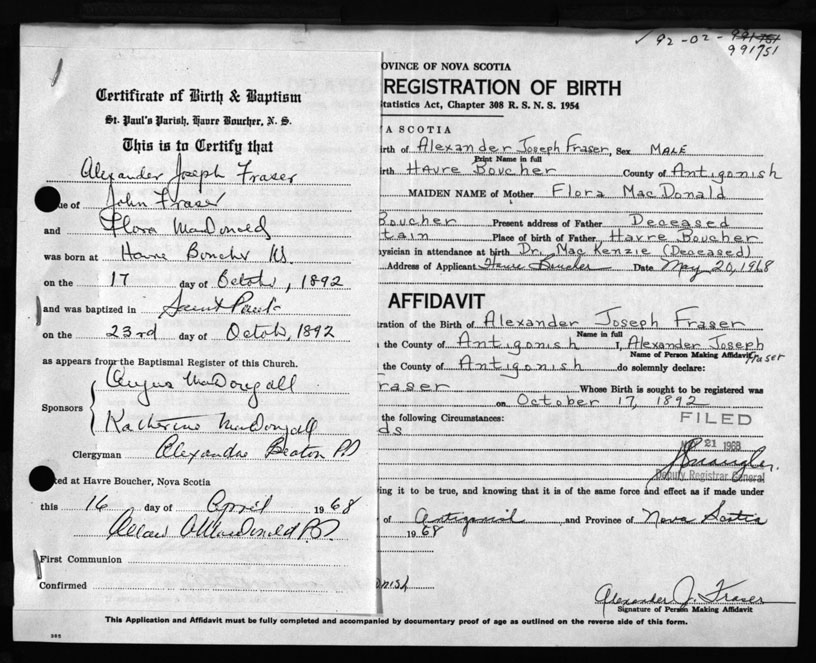 ✓ 92-02-991751
991751
Certificate of Birth & Baptism
St. Paul's Parish, Havre Boucher, N. S.
This is to Certify that
Alexander Joseph Fraser
ue of John Fraser
and Flora MacDonald
was born at Havre Boucher NS.
on the 17 day of October, 1892
and was baptized in Saint Paul
on the 23rd day of October, 1892
as appears from the Baptismal Register of this Church.
Angus MacDougall
Sponsors
Katherine MacDougall
Clergyman Alexander Beaton PP
ted at Havre Boucher, Nova Scotia
this 16 day of April 1968
MacDonald P.P.
First Communion
Confirmed
OVINCE OF NOVA SCOTIA
REGISTRATION OF BIRTH
tatistics Act, Chapter 308 R. S. N. S. 1954
A SCOTIA
irth of Alexander Joseph Fraser, Sex MALE
Print Name in full
irth Havre Boucher County of Antigonish
MAIDEN NAME of Mother Flora MacDonald
Boucher Present address of Father Deceased
tain Place of birth of Father Havre Boucher
ysician in attendance at birth Dr. MacKenzie (Deceased)
Address of Applicant Havre Boucher Date May 20, 1968
AFFIDAVIT
ration of the Birth of Alexander Joseph Fraser
Name in full
the County of Antigonish I, Alexander Joseph
Name of Person Making Affidavit Fraser
the County of Antigonish do solemnly declare:
raser Whose Birth is sought to be registered was
on October 17, 1892
the following Circumstances: FILED
ds
21 1968
Deputy Registrar General
ing it to be true, and knowing that it is of the same force and effect as if made under
of Antigonish and Province of Nova Scotia
1968
onish
Alexander J. Fraser
Signature of Person Making Affidavit
This Application and Affidavit must be fully completed and accompanied by documentary proof of age as outlined on the reverse side of this form.